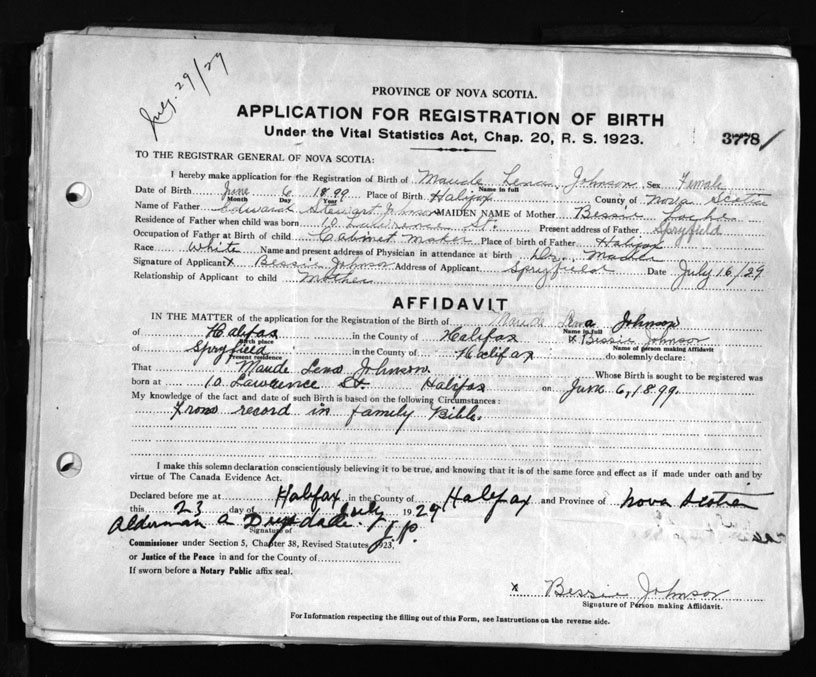 July 29/29
PROVINCE OF NOVA SCOTIA.
APPLICATION FOR REGISTRATION OF BIRTH
Under the Vital Statistics Act, Chap. 20, R. S. 1923.
3778
TO THE REGISTRAR GENERAL OF NOVA SCOTIA:
I hereby make application for the Registration of Birth of Maude Lena Johnson Sex Female
Name in full
Date of Birth June 6 1899 Place of Birth Halifax County of Nova Scotia
Month Day Year
Name of Father Edward Stewart Johnson MAIDEN NAME of Mother Bessie
Residence of Father when child was born 10 Lawrence St. Present address of Father Spryfield
Occupation of Father at Birth of child Cabinet Maker Place of birth of Father Halifax
Race White Name and present address of Physician in attendance at birth Dr.
Signature of Applicant X Bessie Johnson Address of Applicant Spryfield Date July 16/29
Relationship of Applicant to child Mother
AFFIDAVIT
IN THE MATTER of the application for the Registration of the Birth of Maude Lena Johnson
Name in full
of Halifax in the County of Halifax x Bessie Johnson
Birth place Name of person making Affidavit
of Spryfield in the County of Halifax do solemnly declare:
Present residence
That Maude Lena Johnson. Whose Birth is sought to be registered was
born at 10 Lawrence St Halifax on June 6, 1899.
My knowledge of the fact and date of such Birth is based on the following Circumstances:
From record in family Bible.
I make this solemn declaration conscientiously believing it to be true, and knowing that it is of the same force and effect as if made under oath and by
virtue of The Canada Evidence Act.
Declared before me at Halifax in the County of Halifax and Province of Nova Scotia
this 23 day of July 1929
Alderman A Drysdale. J.P.
Signature of
Commissioner under Section 5, Chapter 38, Revised Statutes 1923,
or Justice of the Peace in and for County of
If sworn before a Notary Public affix seal.
x Bessie Johnson
Signature of Person making Affidavit.
For Information respecting the filling out of this Form, see Instructions on the reverse side.